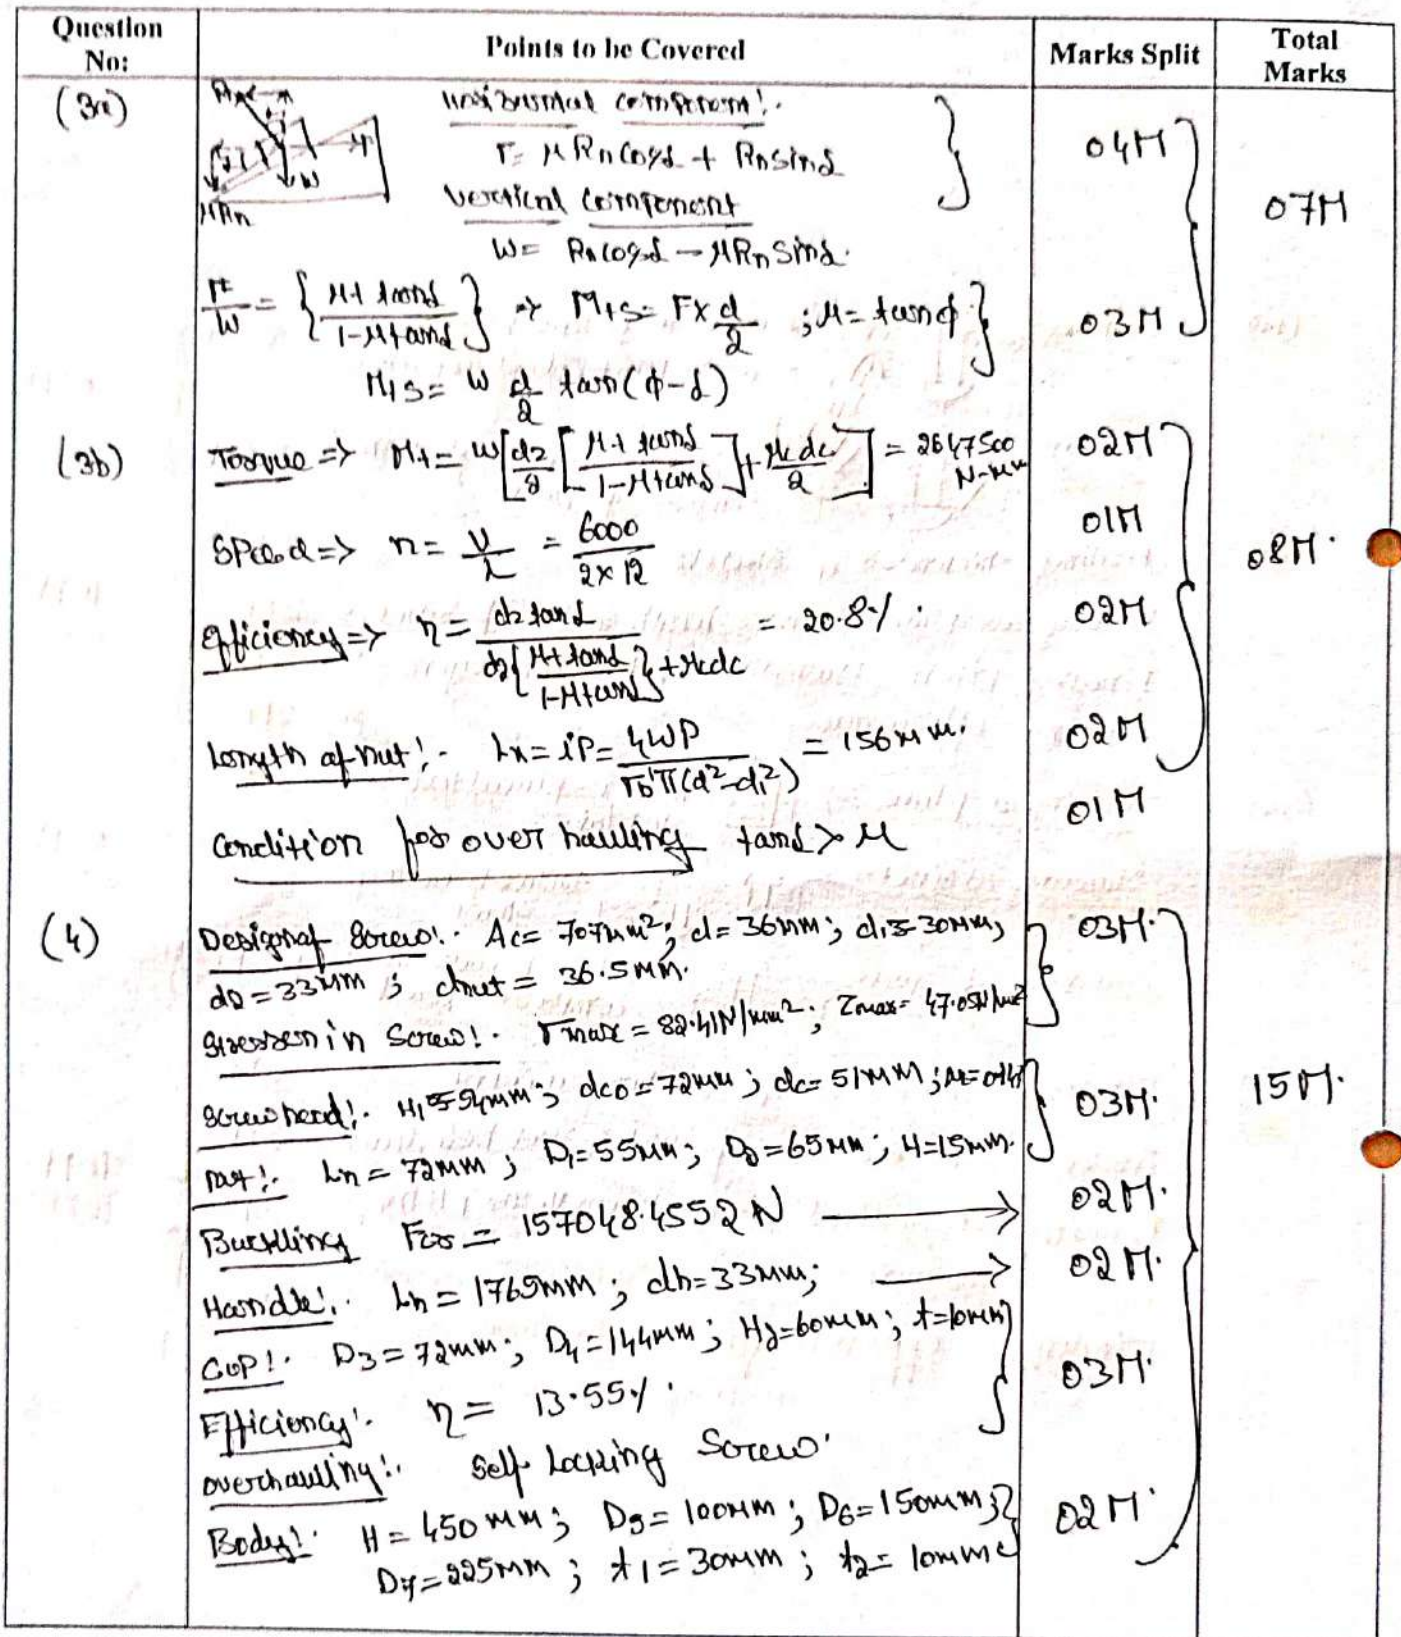 Question No:
Points to be Covered
Marks Split
Total Marks
(3a)
Horizontal component:-
F = μRn cosα + Rn sinα
04M
07M
W
μRn
Vertical component
W = Rn cosα - μRn sinα.
F/W = {μ + tanα / 1 - μ tanα} => Mts = F x d/2 ; μ = tanφ
03M
Mts = W d/2 tan(φ-α)
(3b)
Torque => Mt = W[d2/2 [μ + tanα / 1 - μ tanα] + μc dc/2] = 2647500 N-mm
02M
Speed => n = v/L = 6000/2×12
01M
08M.
Efficiency => η = d2 tanα / d2{μ + tanα / 1 - μ tanα} + μc dc = 20.8%.
02M
Length of nut:- Ln = iP = 4WP / σb'π(d²-d1²) = 156mm.
02M
Condition for over hauling tanα > μ
01M
(4)
Design of Screw:- Ac = 707mm²; d = 36mm; d1 = 30mm;
03M.
d2 = 33mm; dnut = 36.5mm.
Stresses in Screw:- σmax = 82.41N/mm²; τmax = 47.05N/mm²
Screw head:- H1 = 54mm; dco = 72mm; dc = 51mm;
03M.
15M.
nut:- Ln = 72mm; D1 = 55mm; D2 = 65mm; H = 15mm.
Buckling Fcr = 157048.4552 N
02M.
Handle:- Lh = 1765mm; dh = 33mm;
02M.
Cup:- D3 = 72mm; D4 = 144mm; H2 = 60mm; t = 10mm
03M.
Efficiency:- η = 13.55%.
overhauling:- Self Locking Screw.
Body:- H = 450mm; D5 = 100mm; D6 = 150mm;
02M.
D7 = 225mm; t1 = 30mm; t2 = 10mm